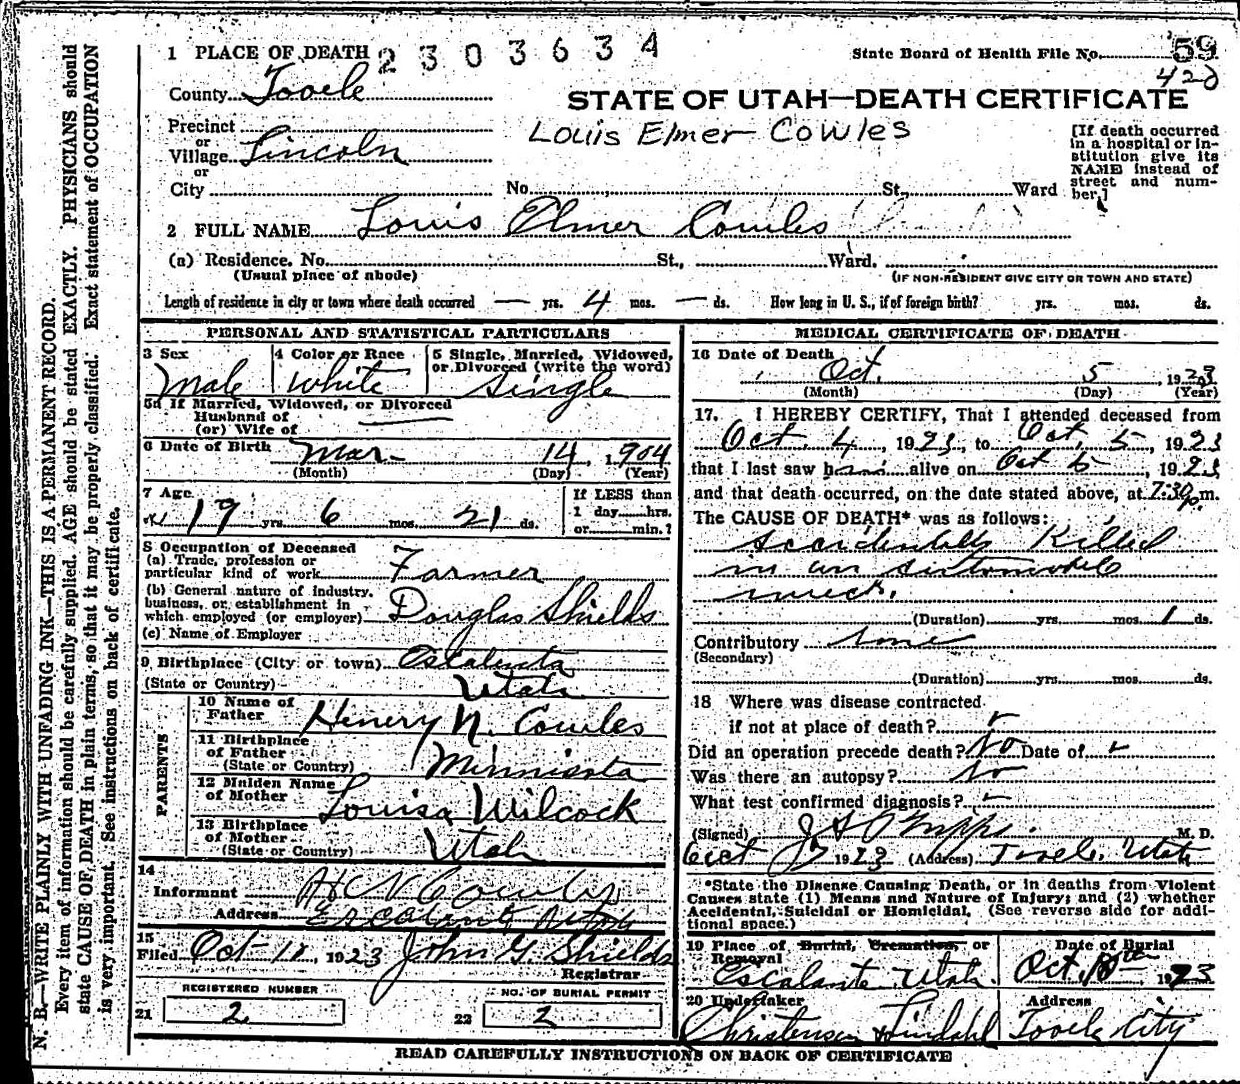 1 PLACE OF DEATH 2303634 State Board of Health File No. 59
420
County Tooele
STATE OF UTAH—DEATH CERTIFICATE
Precinct
or
Village Lincoln
or
Louis Elmer Cowles
[If death occurred
in a hospital or in-
stitution give its
NAME instead of
street and num-
ber.]
City No. St., Ward
2 FULL NAME Louis Elmer Cowles
(a) Residence. No. St., Ward.
(Usual place of abode) (IF NON-RESIDENT GIVE CITY OR TOWN AND STATE)
Length of residence in city or town where death occurred — yrs. 4 mos. — ds. How long in U. S., if of foreign birth? yrs. mos. ds.
PERSONAL AND STATISTICAL PARTICULARS
3 Sex Male
4 Color or Race White
5 Single, Married, Widowed,
or Divorced (write the word)
Single
5a If Married, Widowed, or Divorced
Husband of
(or) Wife of
6 Date of Birth Mar- 14, 1904
(Month) (Day) (Year)
7 Age 19 yrs. 6 mos. 21 ds.
If LESS than
1 day hrs.
or min.?
8 Occupation of Deceased
(a) Trade, profession or
particular kind of work Farmer
(b) General nature of industry,
business, or establishment in
which employed (or employer) Douglas Shields
(c) Name of Employer
9 Birthplace (City or town) Escalenta
(State or Country) Utah
PARENTS
10 Name of
Father Henery N. Cowles
11 Birthplace
of Father
(State or Country) Minnisota
12 Maiden Name
of Mother Louisa Wilcock
13 Birthplace
of Mother
(State or Country) Utah
14
Informant Cowles
Address Escalante Utah
15
Filed Oct- 1923 John G. Shields
Registrar
REGISTERED NUMBER NO. OF BURIAL PERMIT
21 2 22 2
MEDICAL CERTIFICATE OF DEATH
16 Date of Death
Oct. 5, 1923
(Month) (Day) (Year)
17. I HEREBY CERTIFY, That I attended deceased from
Oct 4, 1923, to Oct. 5, 1923
that I last saw him alive on Oct 5, 1923
and that death occurred, on the date stated above, at 7:30 p.m.
The CAUSE OF DEATH* was as follows:
Accidentally Killed
in an automobile
wreck.
(Duration) yrs. mos. 1 ds.
Contributory None
(Secondary)
(Duration) yrs. mos. ds.
18 Where was disease contracted
if not at place of death?
Did an operation precede death? No Date of
Was there an autopsy? No
What test confirmed diagnosis?
(Signed) M. D.
Oct 1923 (Address) Tooele, Utah
*State the Disease Causing Death, or in deaths from Violent
Causes state (1) Means and Nature of Injury; and (2) whether
Accidental, Suicidal or Homicidal. (See reverse side for addi-
tional space.)
19 Place of Burial, Cremation, or
Removal
Escalante Utah
Date of Burial
Oct. 1923
20 Undertaker
Christensen & Lindahl
Address
Tooele City
READ CAREFULLY INSTRUCTIONS ON BACK OF CERTIFICATE
N. B.—WRITE PLAINLY WITH UNFADING INK—THIS IS A PERMANENT RECORD.
Every item of information should be carefully supplied. AGE should be stated EXACTLY. PHYSICIANS should
state CAUSE OF DEATH in plain terms, so that it may be properly classified. Exact statement of OCCUPATION
is very important. See instructions on back of certificate.